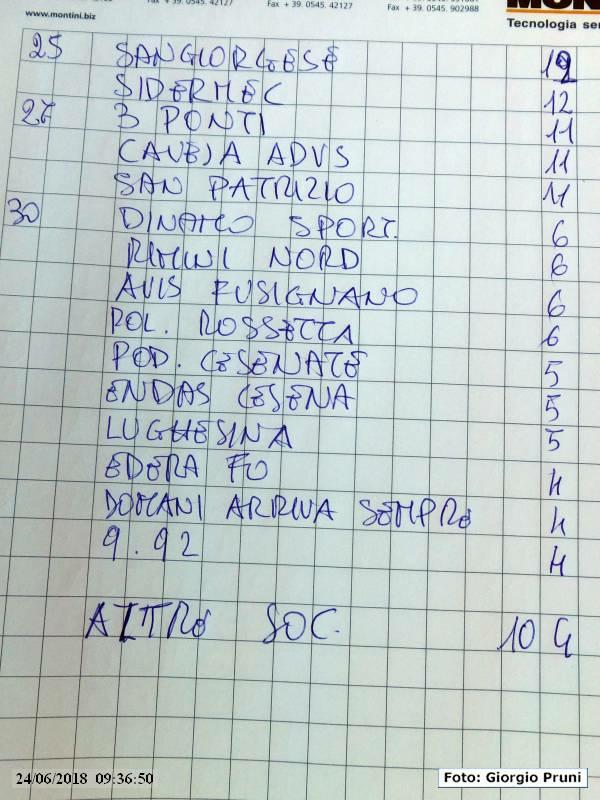 + 39. 0545. 42127
Fax + 39. 0545. 42127
Fax + 39. 0545. 902988
www.montini.biz
Tecnologia ser
25 SANGIORGESE 12
SIDERMEC 12
27 3 PONTI 11
CAVEJA ADVS 11
SAN PATRIZIO 11
30 DINAMO SPORT. 6
RIMINI NORD 6
AVIS FUSIGNANO 6
POL. ROSSETTA 6
POD. CESENATE 5
ENDAS CESENA 5
LUGHESINA 5
EDERA FO 4
DOMANI ARRIVA SEMPRE 4
9.92 4
ALTRE SOC. 104
24/06/2018 09:36:50
Foto: Giorgio Pruni